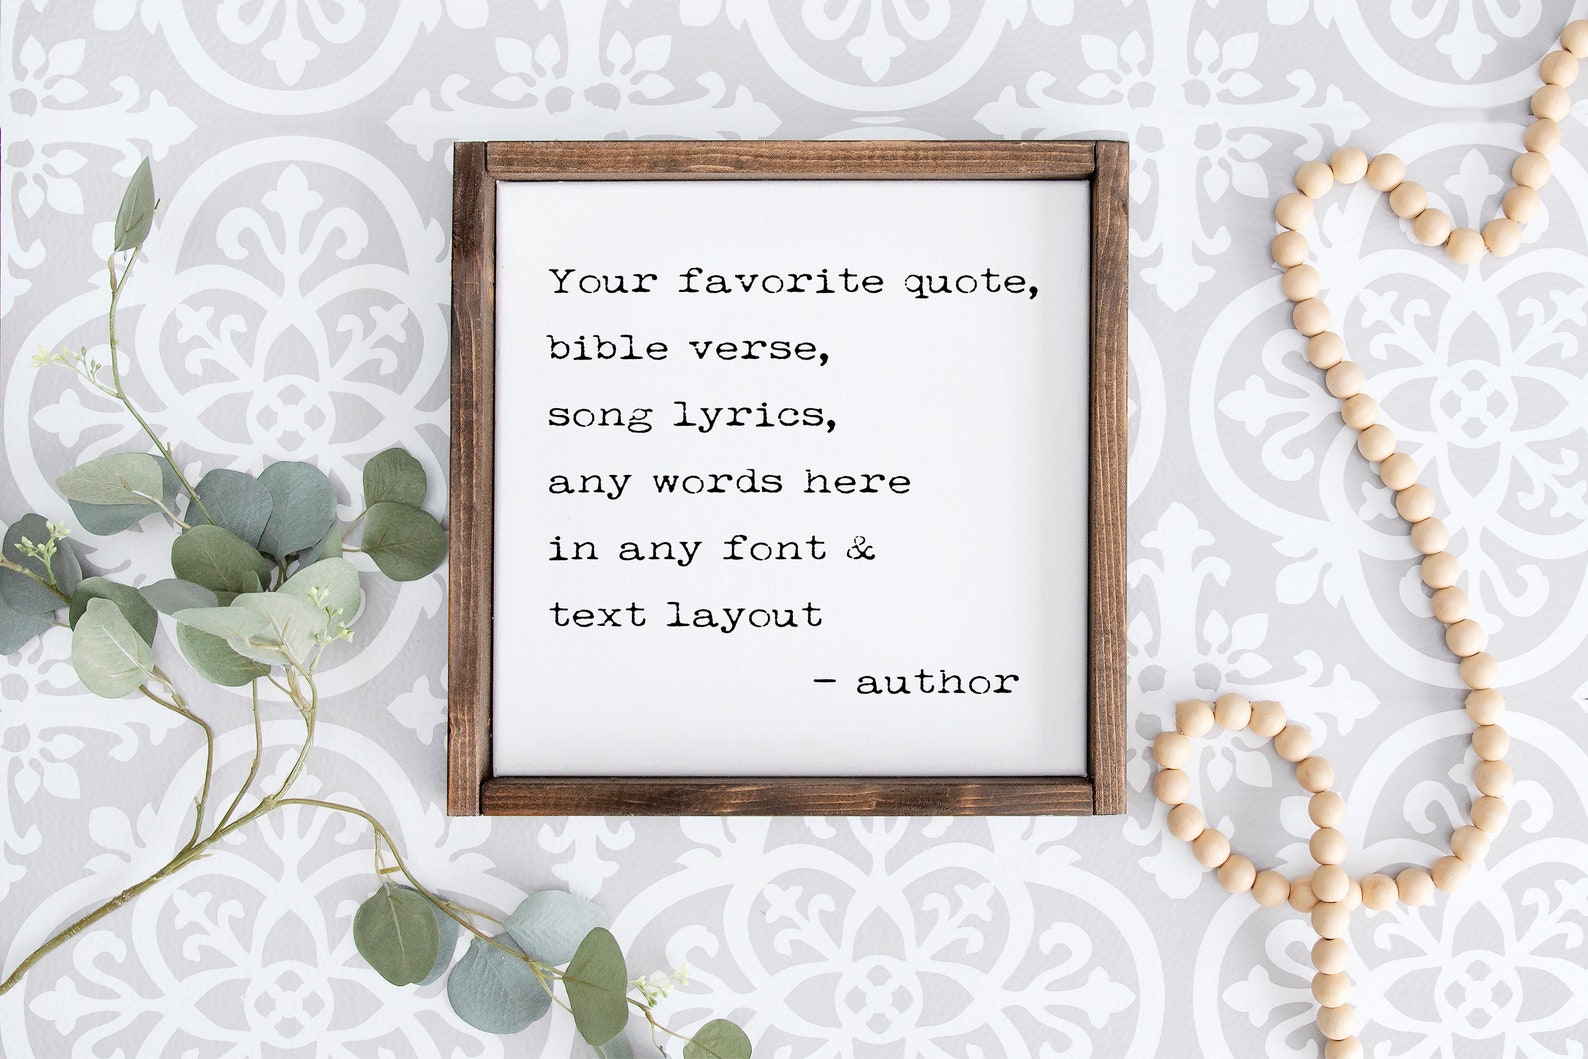 Your favorite quote,
bible verse,
song lyrics,
any words here
in any font &
text layout
- author